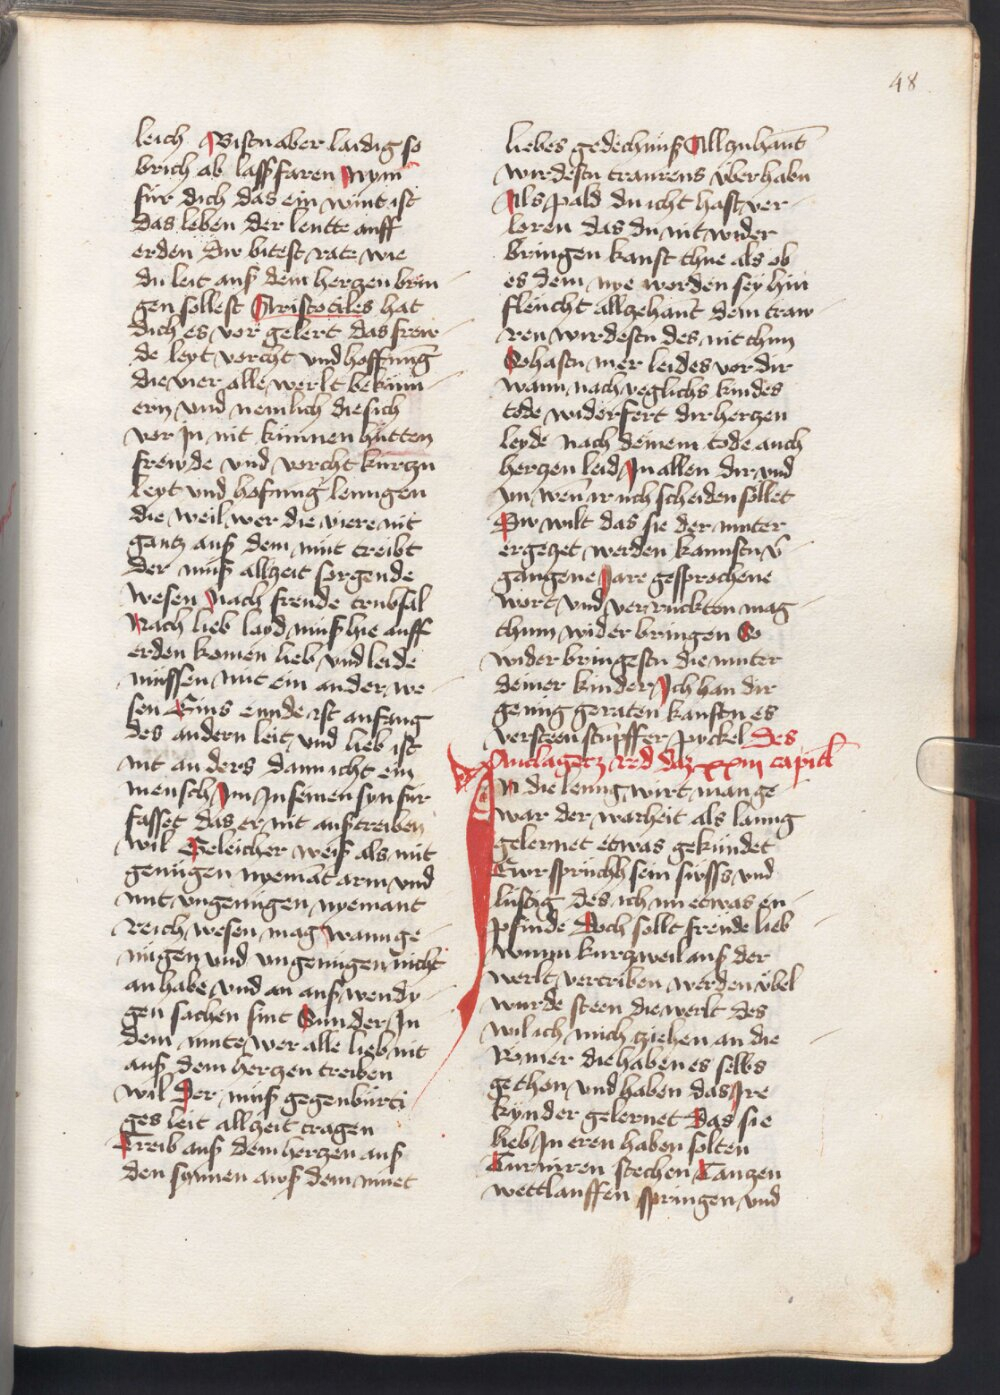 48
leich Bistu aber laidig so
brich ab lass faren Nym
für dich das ein wint ist
das leben der leutte auff
erden Dw bitest rate wie
du leit auß dem hertzen brin
gen sollest Aristotiles hat
dich es vor gelert das frew
de leyt vorcht vnd hoffnung
die vier alle werlt bekümm
ern vnd nemlich die sich
vor Jn nit künnen hütten
frewde vnd vorcht kurtzn
leyt vnd hofnung lenngen
die weil wer die viere nit
gantz auß dem mut treibt
der muß allzeit sorgende
wesen Nach freude trubsal
Nach lieb layd muß hie auff
erden komen lieb vnd leide
müssen mit ein ander we
sen Eins ennde ist anfang
des andern leit vnd lieb ist
nit anders dann icht ein
mensch Im Jn seinen syn für
fasset das er nit außtreiben
wil Geleicher weiß als mit
genügen nyemant arm vnd
mit vngenügen nyemant
reich wesen mag wann ge
nügen vnd vngenügen nicht
an habe vnd an außwendi
gen sachen sint Sunder Jn
dem mute wer alle lieb nit
auß dem hertzen treiben
wil Der muß gegenbürti
ges leit allzeit tragen
Treib auß dem hertzen auß
den synnen auß dem muet
liebes gedechnüß Allzuhant
wirdestu traurens überhabn
Als pald du icht hast ver
loren das du nit wider
bringen kanst thue als ob
es dein nye worden sey hin
fleucht allzehant dein traw
ren wirdestu des nit thun
So hastu mer leides vor dir
wann nach yeglichs kindes
tode widerfert dir hertzen
leyde nach deinem tode auch
hertzen leid Jn allen dir vnd
Jn wenn ir uch scheiden sollet
Dw wilt das sie der muter
ergetzet werden kannstu v̈
gangene Jare gesprochene
wort vnd verruckten mag
thum wider bringen So
wider bringestu die muter
deiner kinder Ich han dir
genug geraten kanstu es
versteen stumpffer pickel Des
Anclagers red daz xxiij capitl
In die leung wirt man ge
war der warheit als lanng
gelernet etwas gekündet
Ewr sprüchh sein süss vnd
lustig des ich nu etwas en
pfinde Doch sollt freude lieb
wunn kurzweil auß der
werlt vertriben werden übel
wurde steen die werlt des
wil ich mich ziehen an die
Römer die haben es selbs
gethon vnd haben das Ire
kynder gelernet Das sie
lieb Jn eren haben solten
Turniren stechen Tantzen
wettlauffen springen vnd